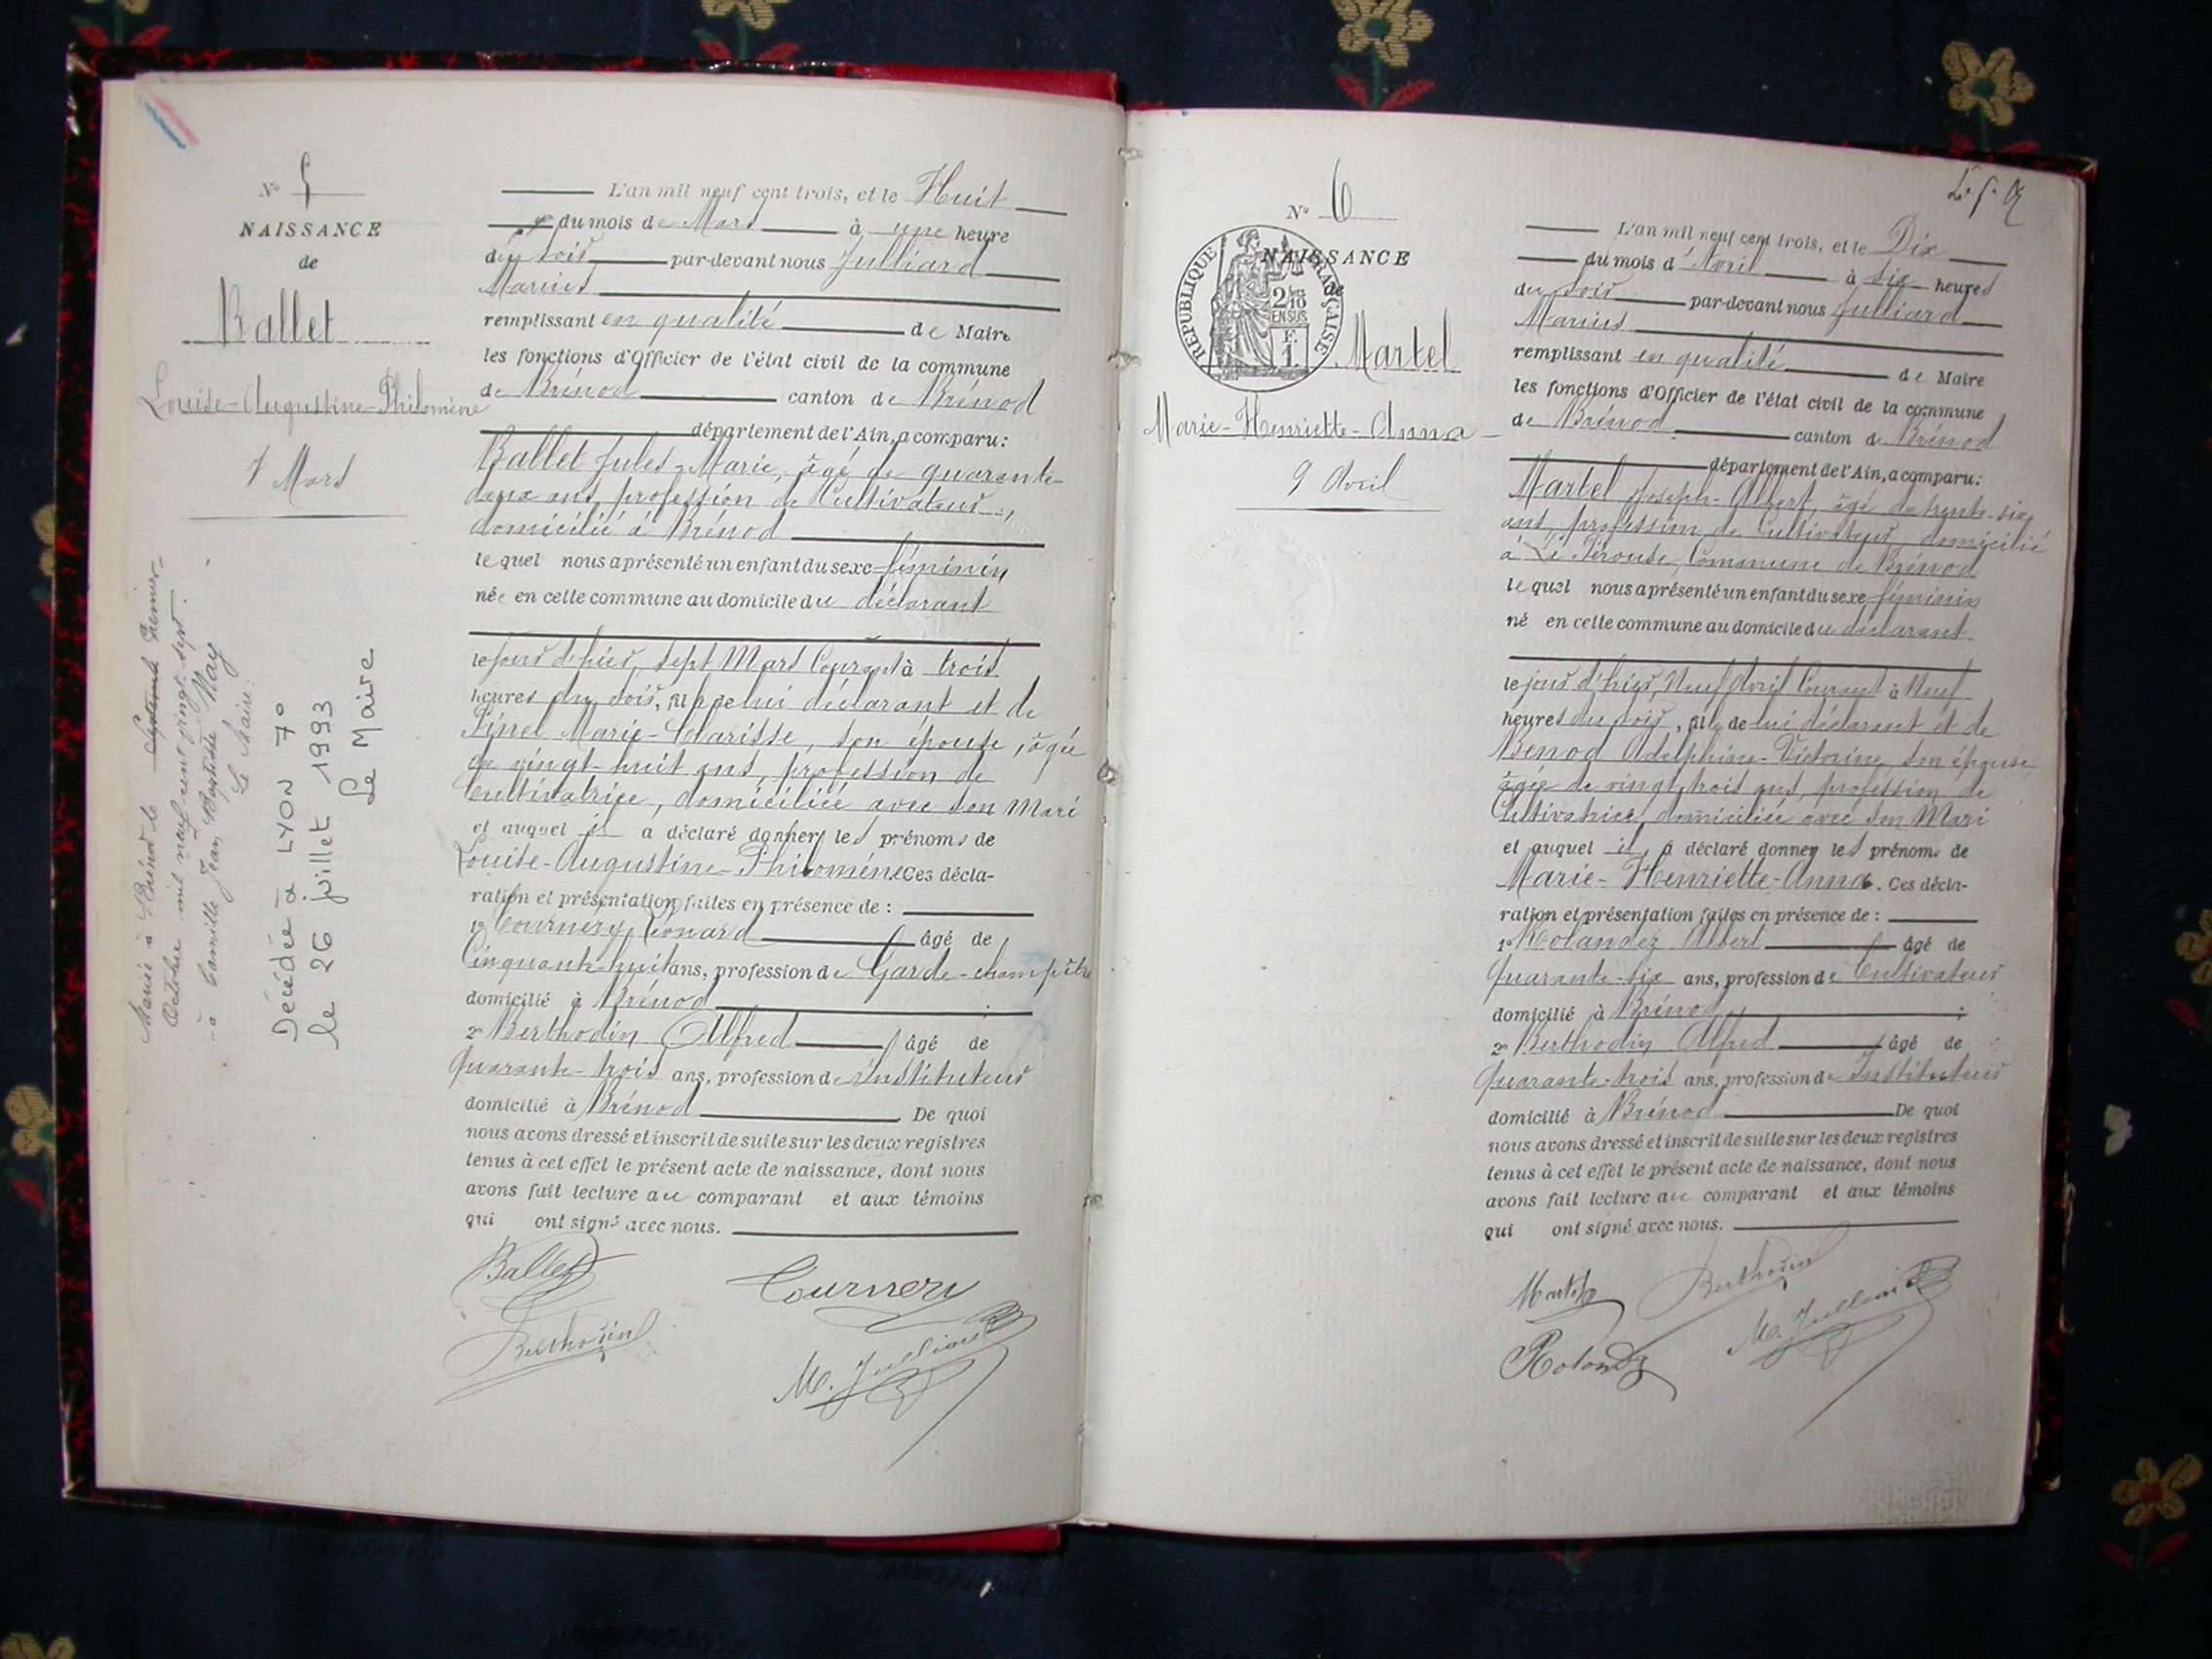 N° 5
NAISSANCE
de
Ballet
Louise-Augustine-Philomène
7 Mars
Mariée à Brénod le Septembre Premier
Octobre mil neuf cent vingt sept
à Camille Jean Baptiste Nay
Le Maire:
Décédée à LYON 7°
le 26 juillet 1993
Le Maire
L'an mil neuf cent trois, et le Huit
du mois de Mars à une heure
du soir par-devant nous Julliard
Marius
remplissant en qualité de Maire
les fonctions d'Officier de l'état civil de la commune
de Brénod canton de Brénod
département de l'Ain, a comparu:
Ballet Jules-Marie, âgé de quarante-
deux ans, profession de Cultivateur,
domicilié à Brénod
lequel nous a présenté un enfant du sexe féminin
née en cette commune au domicile du déclarant
le jour d'hier, sept Mars Courant à trois
heures du soir, fille de lui déclarant et de
Pinel Marie-Clarisse, son épouse, âgée
de vingt-huit ans, profession de
Cultivatrice, domiciliée avec son Mari
et auquel il a déclaré donner les prénoms de
Louise-Augustine-Philomène Ces décla-
ration et présentation faites en présence de :
1° Cournery, Léonard âgé de
Cinquante-huit ans, profession de Garde-champêtre
domicilié à Brénod ;
2° Berthodin Alfred âgé de
Quarante-trois ans, profession de Instituteur
domicilié à Brénod De quoi
nous avons dressé et inscrit de suite sur les deux registres
tenus à cet effet le présent acte de naissance, dont nous
avons fait lecture au comparant et aux témoins
qui ont signé avec nous.
Ballet
Cournery
Berthodin
M. Julliard
N° 6
NAISSANCE
de
REPUBLIQUE FRANÇAISE
2/10 EN SUS
F. 1.
Martel
Marie-Henriette-Anna
9 Avril
L'an mil neuf cent trois, et le Dix
du mois d'Avril à six heures
du soir par-devant nous Julliard
Marius
remplissant en qualité de Maire
les fonctions d'Officier de l'état civil de la commune
de Brénod canton de Brénod
département de l'Ain, a comparu:
Martel Joseph-Albert, âgé de trente-six
ans, profession de Cultivateur, domicilié
à La Pérouse, Commune de Brénod
lequel nous a présenté un enfant du sexe féminin
né en cette commune au domicile du déclarant
le jour d'hier, Neuf Avril Courant à Neuf
heures du soir, fille de lui déclarant et de
Bénod Adelphine-Victorine, son épouse
âgée de vingt-trois ans, profession de
Cultivatrice, domiciliée avec son Mari
et auquel il a déclaré donner les prénoms de
Marie-Henriette-Anna. Ces décla-
ration et présentation faites en présence de :
1° Rolandez Albert âgé de
Quarante-six ans, profession de Cultivateur
domicilié à Brénod ;
2° Berthodin Alfred âgé de
Quarante-trois ans, profession de Instituteur
domicilié à Brénod De quoi
nous avons dressé et inscrit de suite sur les deux registres
tenus à cet effet le présent acte de naissance, dont nous
avons fait lecture au comparant et aux témoins
qui ont signé avec nous.
Martel
Berthodin
Rolandez
M. Julliard